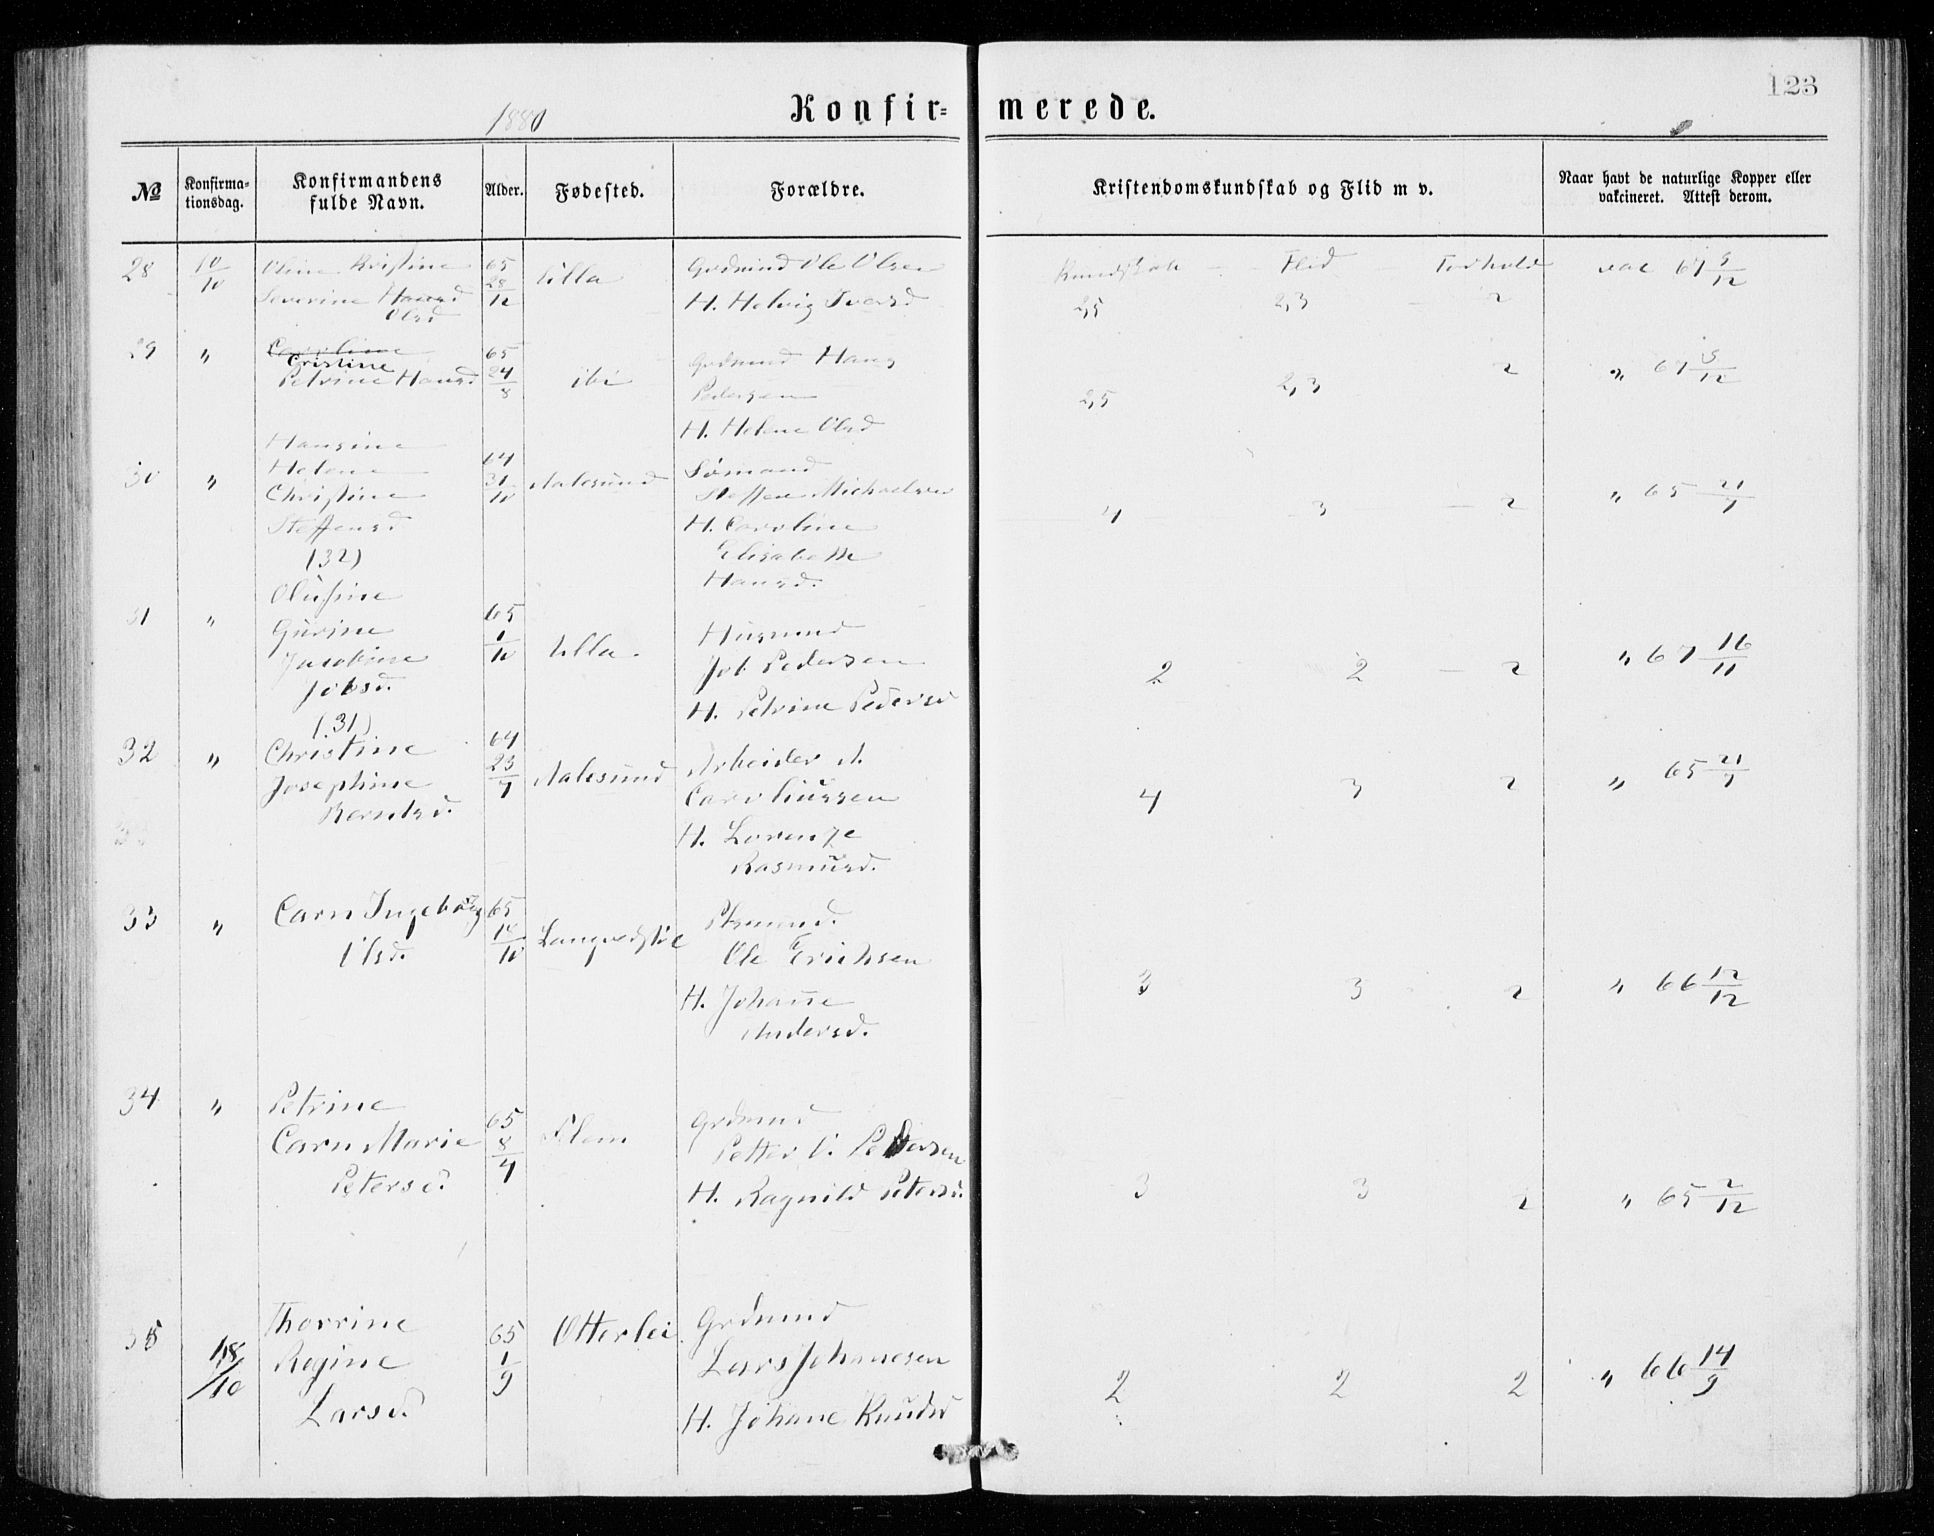 123
1880
Konfir=merede.
№ Konfirma-tionsdag. Konfirmandens fulde Navn. Alder. Fødested. Forældre. Kristendomskundskab og Flid m v. Naar havt de naturlige Kopper eller vakcineret. Attest derom.
28 10/10 Oline Kristine 65 Ulla Grdmand Ole Olsen Kundskab - Flid - Forhold vac 67 5/12
Severine Hansd 28/12 H. Helvig Iversd 2,5 2,3 2
Olsd
29 " Caroline 65 Grdmand Hans
Cristine 24/8 ibi 2 " 67 5/12
Petrine Hansd Pedersen 2,5 2,3
H. Helene Olsd
Hansine
30 " Helene 64 Aalesund Sømand
Christine 31/10 Steffen Michaelsen 4 3 2 " 65 21/7
Steffensd H. Caroline
(32) Elisabeth
Hansd.
Olufine
31 " Gurine 65 Husmand
Jacobine 1/10 Ulla. Job Pedersen 2 2 2 " 67 16/11
Jobsd. H. Petrine Pedersd
(31)
32 " Christine 64 Arbeider A.
Josephine 23/7 Aalesund Caroliussen 4 3 2 " 65 21/7
Berntsd. H. Lorenze
Rasmusd.
33 " Carn Ingeborg 65 Plsmand.
Olsd. 14/10 Ole Erichsen
H. Johanne 3 3 2 " 66 12/12
Andersd.
34 " Petrine
Carn Marie 65 Flem Grdmand
8/4 Petter O. Pettersen
Petersd. H. Ragnild Petersd. 3 3 2 " 65 2/12
35 18/10 Thorrine 65 Otterlei Grdmand
Regine 1/9 Lars Johanesen 2 2 2 " 66 14/9
Larsd. H. Johane Knudsd